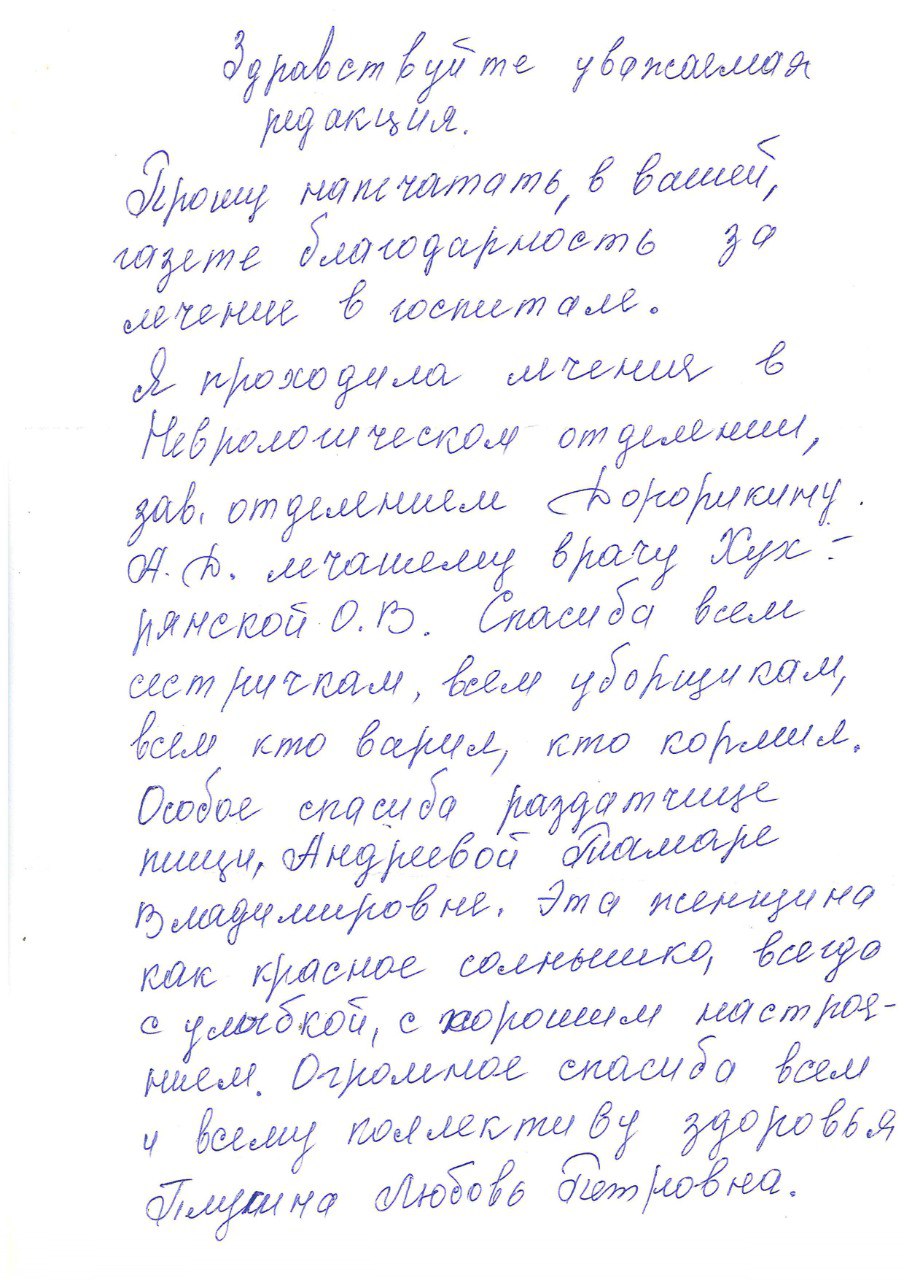 Здравствуйте уважаемая
редакция.
Прошу напечатать, в вашей,
газете благодарность за
лечение в госпитале.
Я проходила лечения в
Неврологическом отделении,
зав. отделением
А.Д. лечашему врачу Хух-
рянской О.В. Спасиба всем
сестричкам, всем уборщикам,
всем кто варил, кто кормил.
Особое спасиба раздатчице
пищи, Андреевой Тамаре
Владимировне. Эта женщина
как красное солнышко, всегда
с улыбкой, с хорошим настрое-
нием. Огромное спасиба всем
и всему коллективу здоровья
Любовь Петровна.